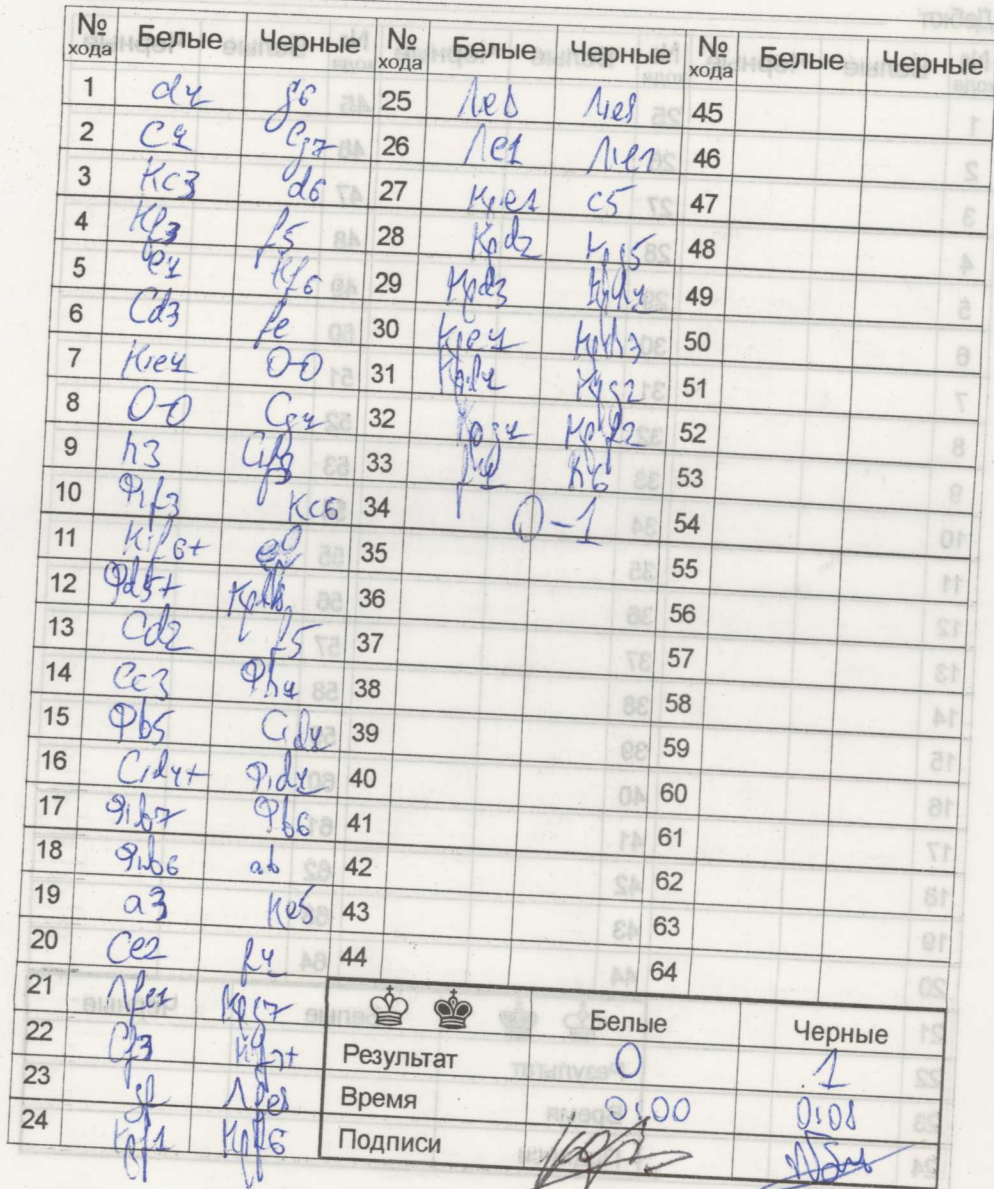 № хода Белые Черные № хода Белые Черные № хода Белые Черные
1 d4 g6 25 Ле8 Л:е8 45
2 c4 Cg7 26 Ле1 Л:е1 46
3 Kc3 d6 27 Кр:е1 c5 47
4 Kf3 f5 28 Крd2 Крg5 48
5 e4 Kf6 29 Крd3 Крh4 49
6 Cd3 fe 30 Кре4 Кр:h3 50
7 K:e4 0-0 31 Кр:f4 Крg2 51
8 0-0 Cg4 32 Крg4 Кр:f2 52
9 h3 C:f3 33 h6 53
10 Ф:f3 Kc6 34 0-1 54
11 K:f6+ ef 35 55
12 Фd5+ Крh8 36 56
13 Cd2 f5 37 57
14 Cc3 Фh4 38 58
15 Фb5 C:d4 39 59
16 C:d4+ Ф:d4 40 60
17 Ф:b7 Фb6 41 61
18 Ф:b6 ab 42 62
19 a3 Ke5 43 63
20 Ce2 f4 44 64
21 Лfe1 Крg7
22 Cf3 K:f3+
23 gf Лfe8
24 Крf1 Крf6
Белые Черные
Результат 0 1
Время 0:00 0:08
Подписи